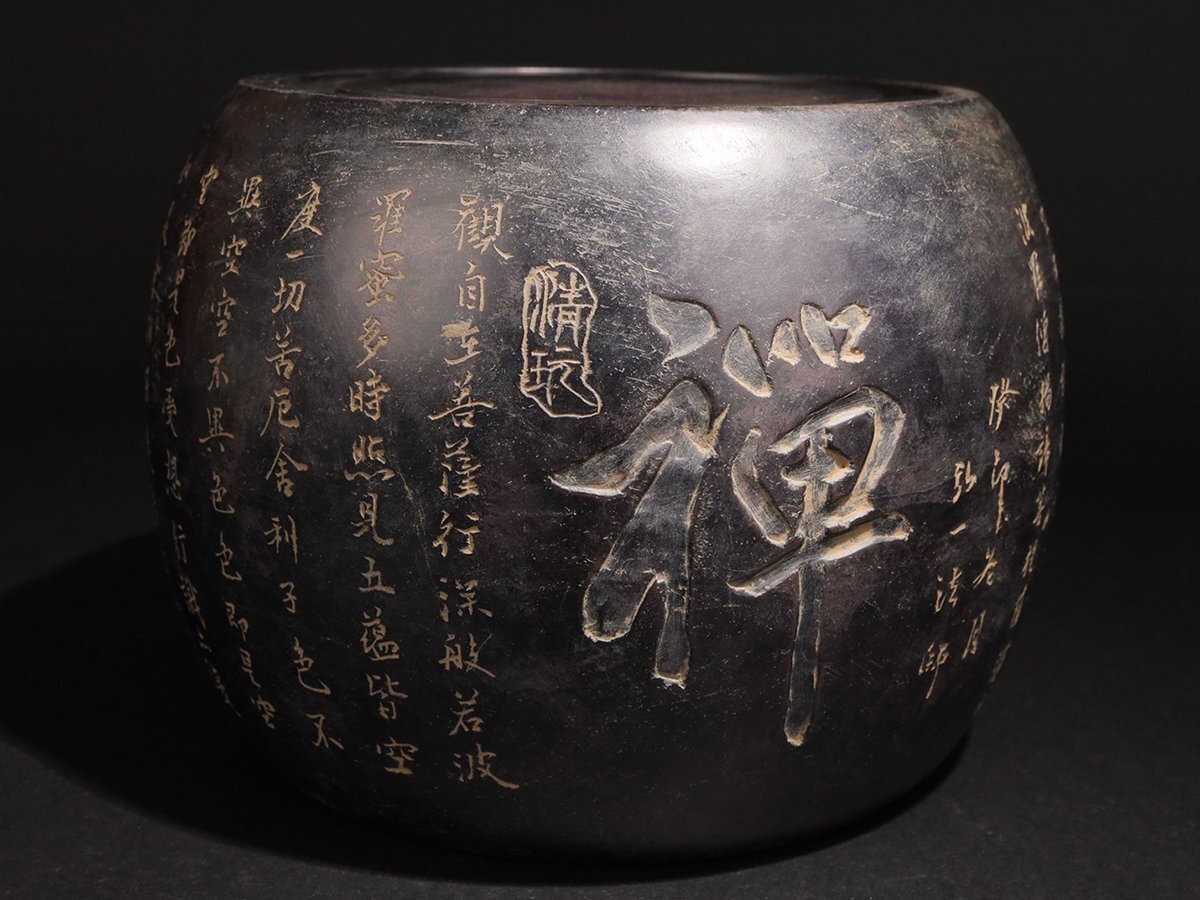 癸卯冬月
弘一法
禪
清玩
觀自在菩薩行深般若波
羅蜜多時照見五蘊皆空
度一切苦厄舍利子色不
異空空不異色色即是空
空即是色受想行識